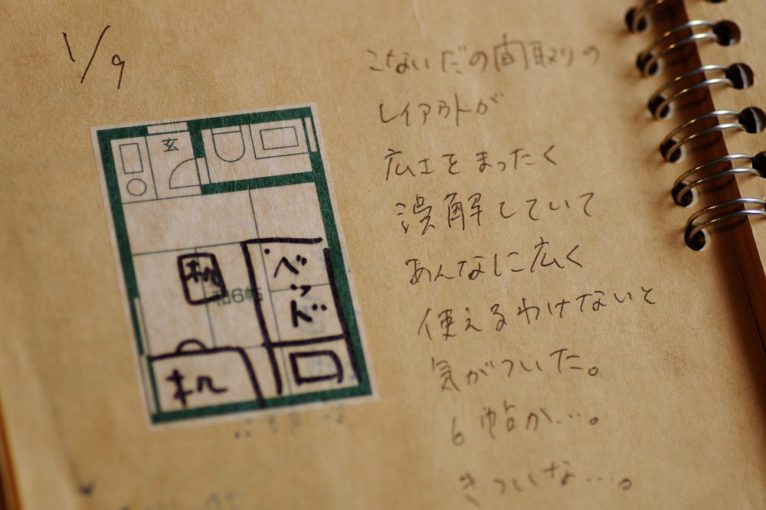 1/9
こないだの間取りの
レイアウトが
広さをまったく
誤解していて
あんなに広く
使えるわけないと
気がついた。
6帖か…。
きついな…。
玄
机
和6帖
ベッド
机